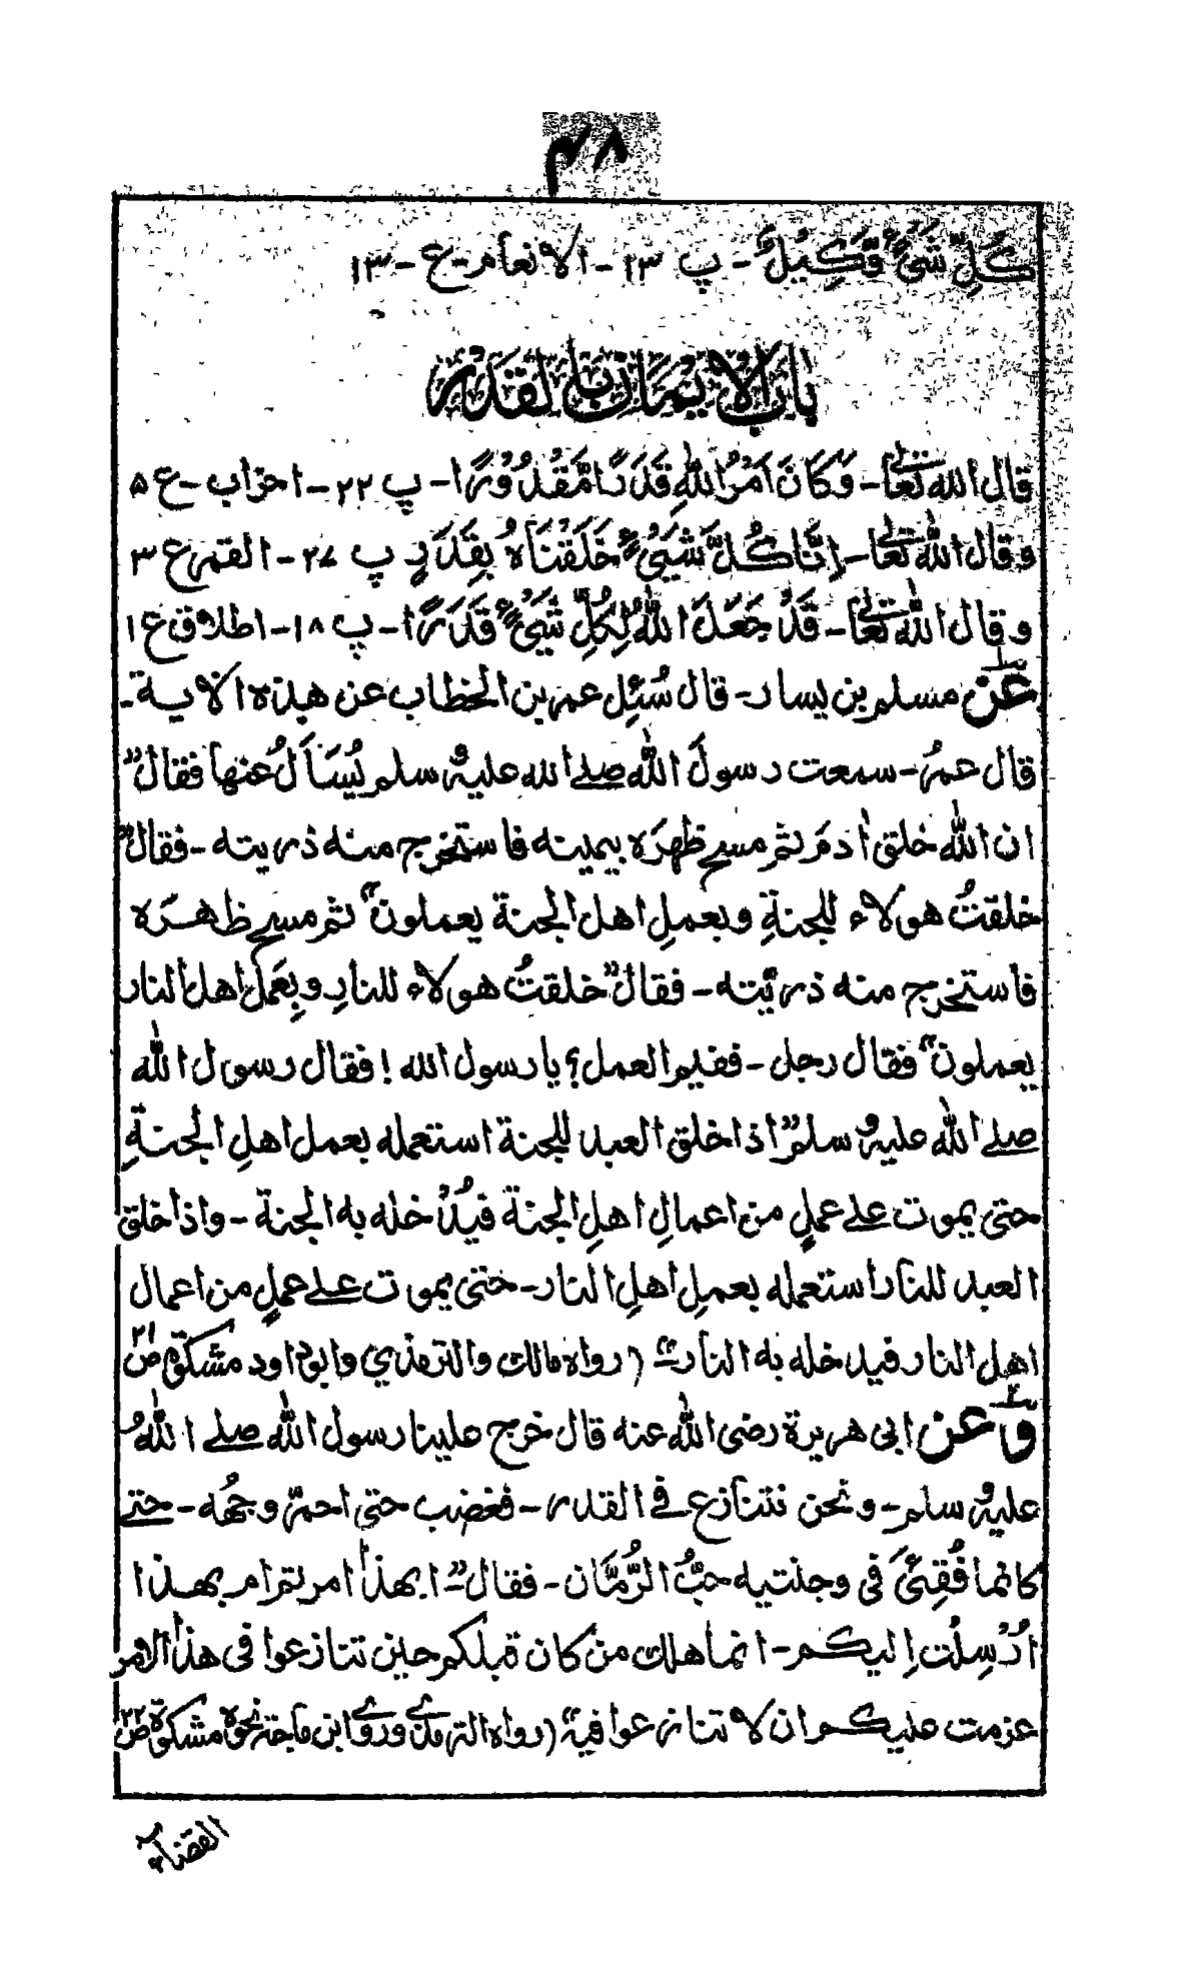 ۴۸
كُلِّ شَيْءٍ وَّكِيْلٌ - پ ۱۳ - الانعام - ع - ۱۳
باب الايمان بالقدر
قال الله تعالى - وَكَانَ اَمْرُ اللهِ قَدَرًا مَّقْدُوْرًا - پ ۲۲ - احزاب - ع ۵
وقال الله تعالى - اِنَّا كُلَّ شَيْءٍ خَلَقْنَاهُ بِقَدَرٍ پ ۲۷ - القمر ع ۳
وقال الله تعالى - قَدْ جَعَلَ اللهُ لِكُلِّ شَيْءٍ قَدَرًا - پ ۱۸ - اطلاق ع ۱
عن مسلم بن يسار - قال سُئِل عمر بن الخطاب عن هذه الاية -
قال عمرُ - سمعت رسولَ الله صلے الله عليه وسلم يُسَاَلُ عنها فقال "
ان الله خلق اٰدمَ ثم مسح ظهرَه بيمينه فاستخرج منه ذريته - فقال "
خلقتُ هولاء للجنةِ وبعملِ اهل الجنة يعملون" ثم مسح ظهرَه
فاستخرج منه ذريَّته - فقال" خلقتُ هولاء للنارِ وبِعَملِ اهل النار
يعملون" فقال رجل - ففيم العمل؟ يا رسول الله! فقال رسول الله
صلے الله عليه وسلم" اذا خلق العبد للجنة استعمله بعمل اهلِ الجنةِ
حتى يموت علے عملٍ من اعمالِ اهلِ الجنة فيُدْخله به الجنة - واذا خلق
العبد للنار استعمله بعملِ اهلِ النار - حتى يموت علے عملٍ من اعمال
اهل النار فيدخله به النار" (رواه مالك والترمذي وابوداود مشكوٰة ص ۲۱
وَعن ابى هريرة رضى الله عنه قال خرج علينا رسول الله صلے اللهُ
عليه وسلم - ونحن نتنازع فے القدر - فغضب حتى احمرّ وجهُه - حتے
كانما فُقِئَ فى وجنتيه حبُّ الرُّمَّان - فقال" ابهذا امرتم ام بهذا
اُرْسِلْت اِليكم - انما هلك من كان قبلكم حين تنازعوا فى هذا الامر
عزمت عليكم ان لا تنازعوا فيه" (رواه الترمذے وروے ابن ماجة نحوه مشكوٰة ص ۲۲
القضاء